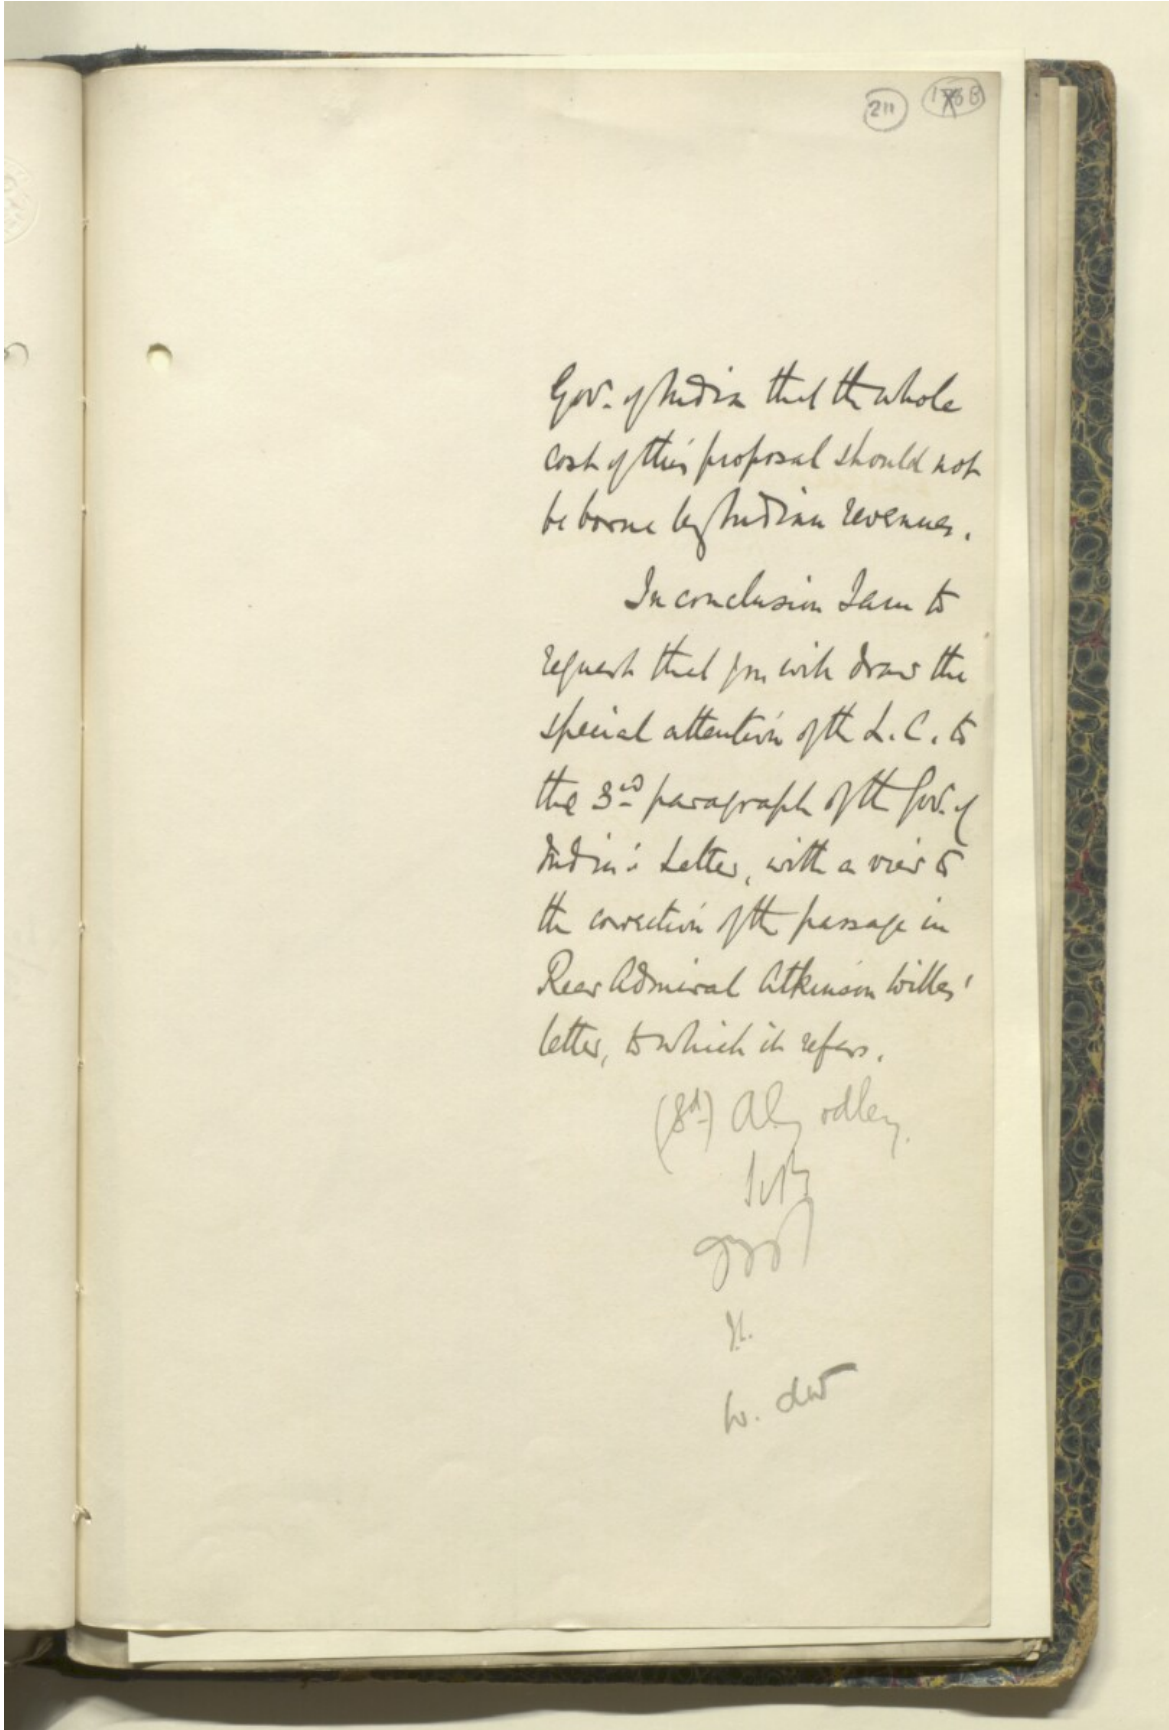 211
Gov. of India that the whole
cost of this proposal should not
be borne by Indian revenues.
In conclusion I am to
request that you will draw the
special attention of th L. C. to
the 3rd paragraph of th Gov. of
India's letter, with a view to
the correction of th passage in
Rear Admiral Atkinson Willes'
letter, to which it refers.
(Sd) A Godley.